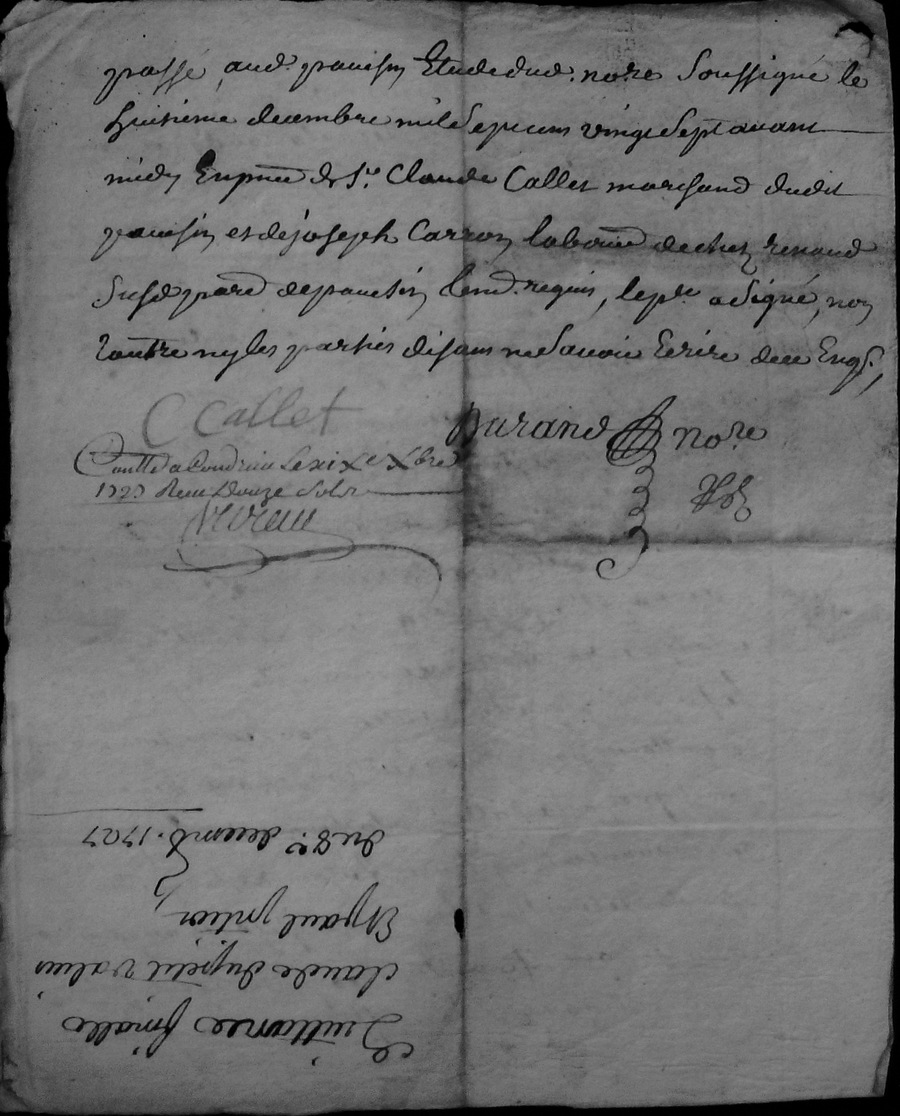 passé aud. pauesin Etude dud. nore Soussigné le
huitieme decembre mil Sept cens vingt Sept avant
midy En pnce de Sr. Claude Callet marchand dudit
pauesin et de joseph Carron labour de chez renaud
Susd pard de pauesin temd. requis, le pr a Signé, non
l'autre ny les parties disans ne Savoir Ecrire de ce Enqs,
C Callet
Durand nore
Contlé a Condrieu Le xixe Xbre
1727 Reçu Douze Sols
Quittance finalle
claude dupetit valuis
Et paul
du 8e. decemb. 1727